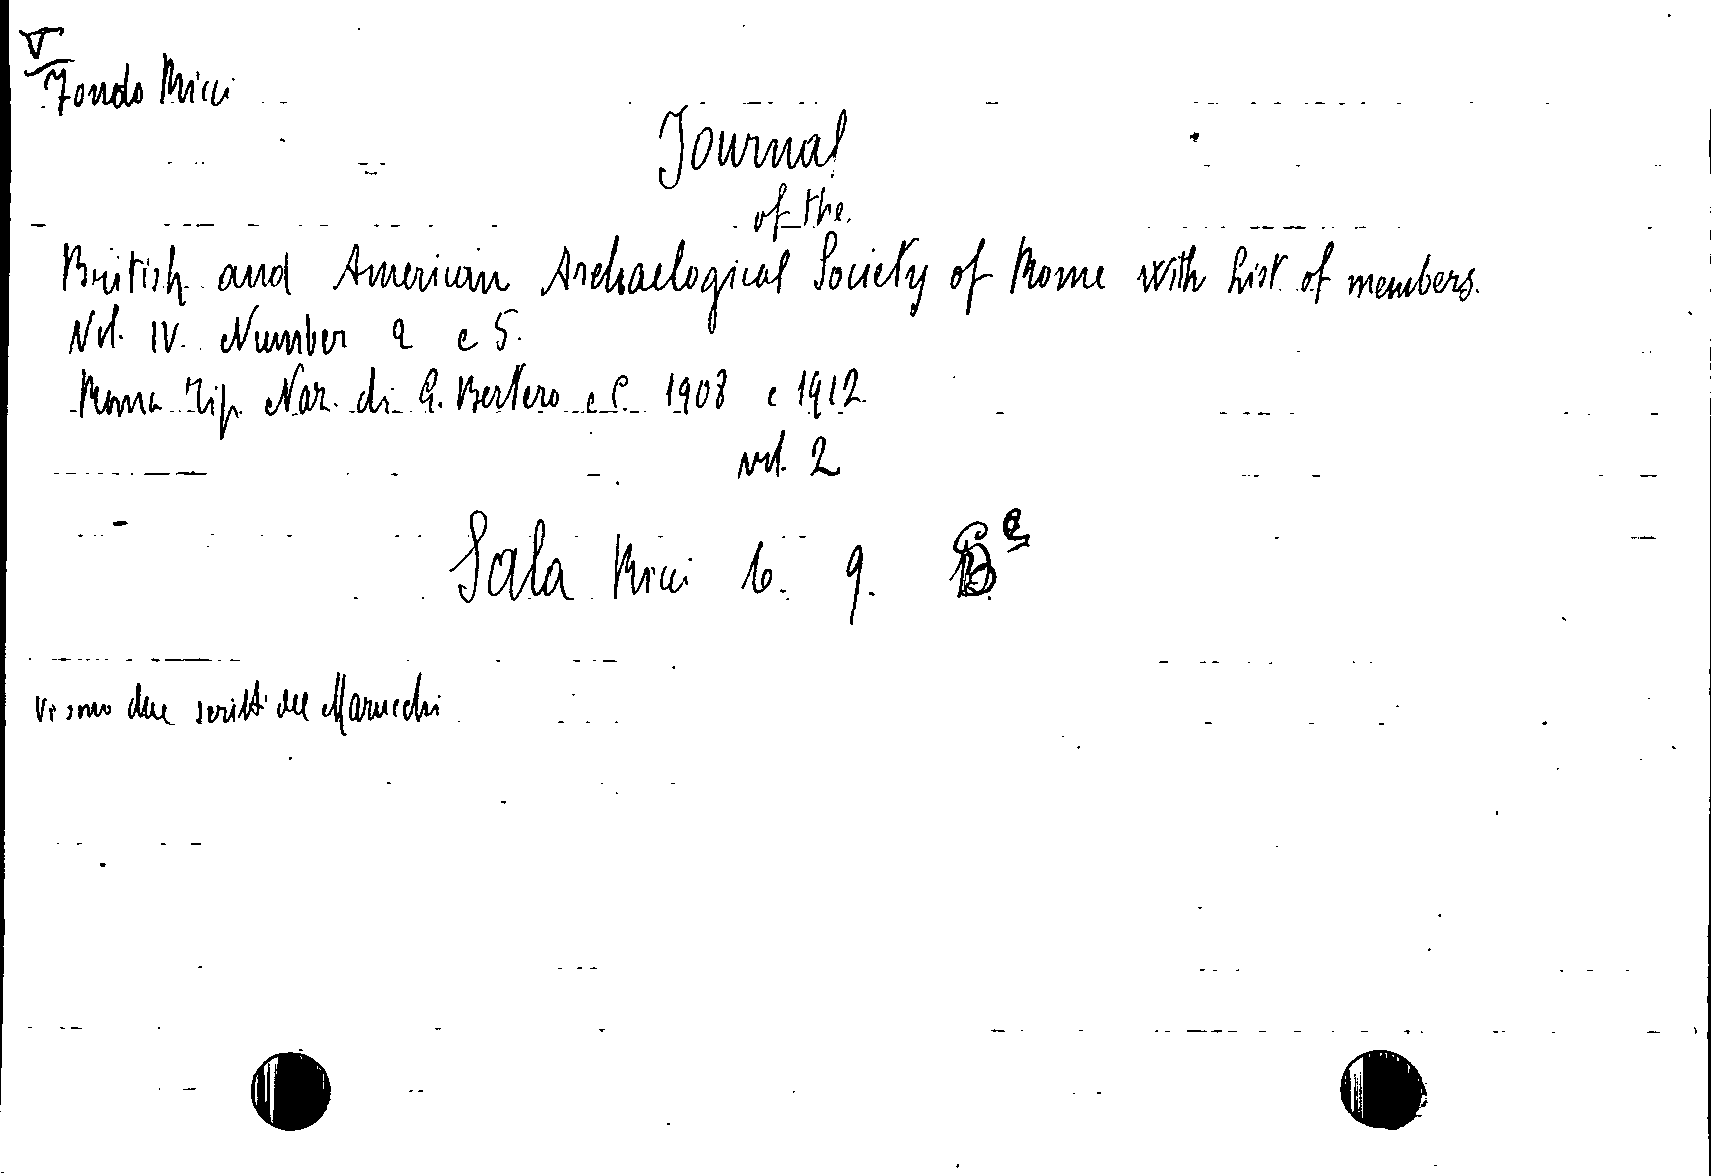 V
Fondo Ricci
Journal
of the
British and American Archaelogical Society of Rome with List of members.
Vol. IV. Number 2 e 5.
Roma Tip. Naz. di G. Bertero e C. 1908 e 1912
vol. 2
Sala Ricci 6. 9.
Vi sono due scritti del Marucchi